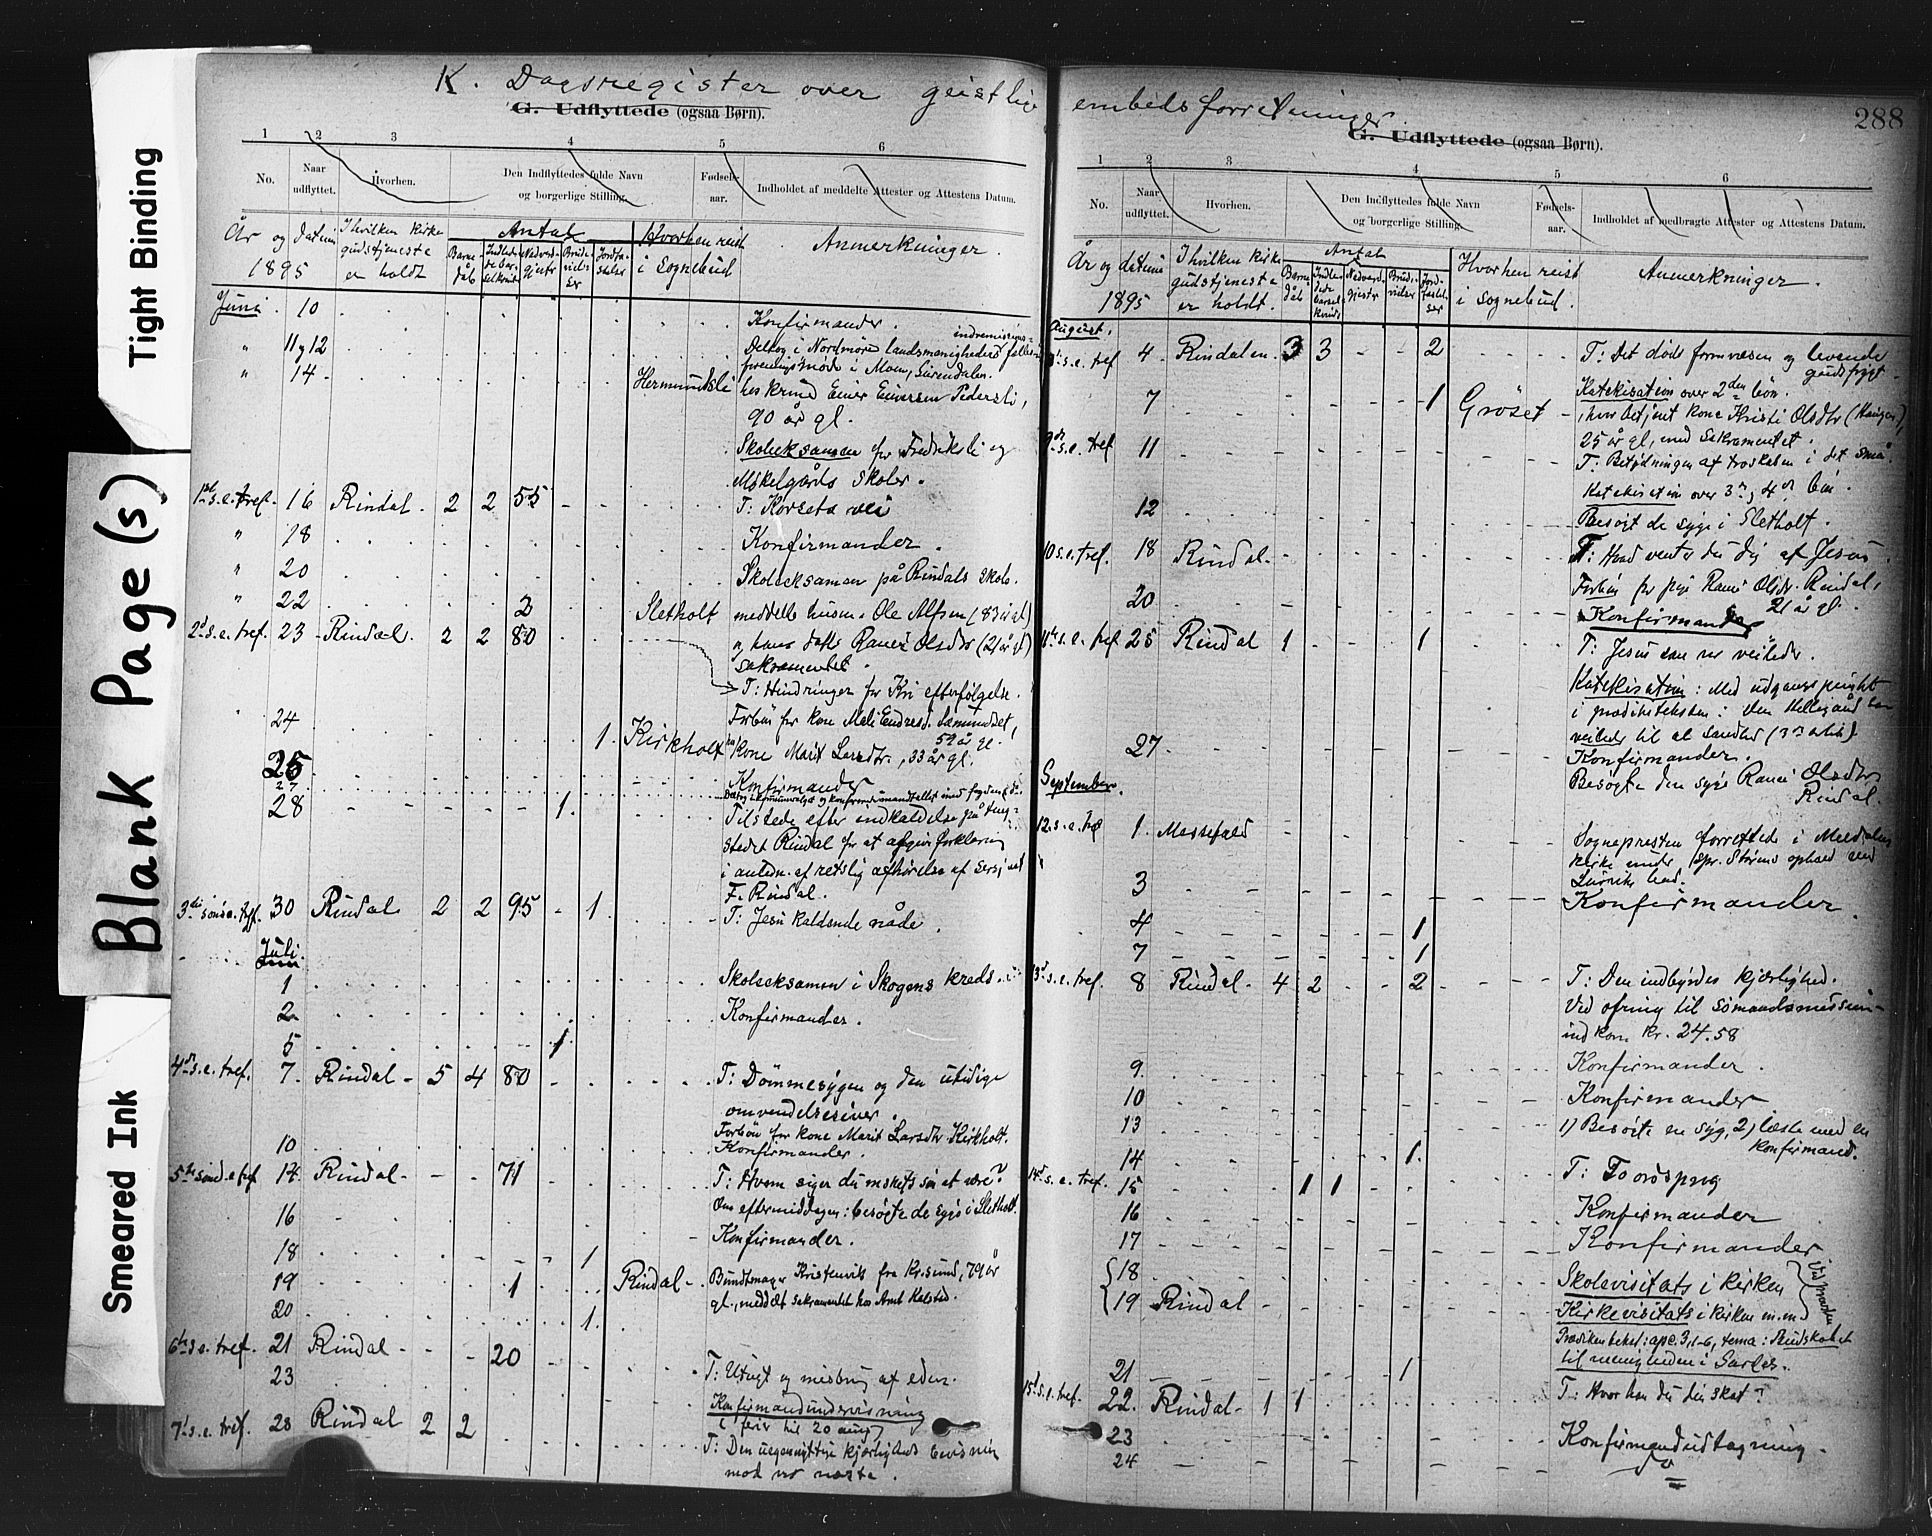 Tight Binding
Blank Page(s)
Smeared Ink
K. Dagsregister over geistlige embedsforretninger.
288
G. Udflyttede (ogsaa Børn).
1 2 3 4 5 6
No. Naar udflyttet. Hvorhen. Den Indflyttedes fulde Navn og borgerlige Stilling. Fødsels-aar. Indholdet af meddelte Attester og Attestens Datum.
År og datum 1895 I hvilken kirke gudstjeneste er holdt Antal Barnedåb Brudevielser Jordfæstelser Hvorhen reist i sognebud Anmerkninger.
Juni 10 Konfirmander.
" 11 og 12 Deltog i Nordmøre landsmenigheders
foreningsmøde i Moen, Surendalen.
" 14 Hermundsli
90 år gl.
Skoleeksamen for Fredriksli og
Mikelgårds skoler.
1ste s.e. tref. 16 Rindal 2 2 55 T: Korsets vei
" 18 Konfirmander.
" 20 Skoleeksamen på Rindals skole.
" 22 2 Sletholt meddelte husm. Ole Alfsen (83 år gl)
2d s.e. tref. 23 Rindal 2 2 80 og hans datter Ranei Olsdtr (21 år gl)
sakramentet.
T: Hindringer for Kri efterfølgelse.
24 1 Kirkholt Forbøn for kone
59 år gl.
kone Marit Larsdtr, 33 år gl.
25 Konfirmander
27
28 1 Tilstede efter indkaldelse på ting-
stedet Rindal for at afgive forklaring
i anledn. af retslig afhørelse af
F. Rindal.
3die sønd.e. tref. 30 Rindal 2 2 95 - 1 T: Jesu kaldende nåde.
Juli
1 Skoleeksamen i Skogens kreds.
2 Konfirmander.
5 1
4de s.e. tref. 7 Rindal 5 4 80 T: Dømmesygen og den utidige
omvendelsesiver.
Forbøn for kone Marit Larsdtr Kirkholt.
10 Konfirmander.
5te sønd e tref 14 Rindal - - 71 T: Hvem siger du mskets søn at være?
Om eftermiddagen: besøgte de syge i Sletholt.
16 Konfirmander.
18 1
19 1 Rindal Bundtmager Kristenvik fra Kr.sund, 79 år
gl., meddelt sakramentet hos Arnt Halsted.
20 1
6te s e. tref. 21 Rindal 20
23 T: Utugt og misbrug af eden.
Konfirmandundervisning
(ferie til 20 aug)
7de s.e. tref. 28 Rindal 2 2 T: Den uegennyttige kjærligheds bevisning
mod vor næste.
G. Udflyttede (ogsaa Børn).
1 2 3 4 5 6
No. Naar udflyttet. Hvorhen. Den Indflyttedes fulde Navn og borgerlige Stilling. Fødsels-aar. Indholdet af medbragte Attester og Attestens Datum.
År og datum 1895 I hvilken kirke gudstjeneste er holdt. Antal Barnedåb Brudevielser Jordfæstelser Hvorhen reist i sognebud. Anmerkninger.
August.
s.e. tref 4 Rindalen 3 3 - - 2 T: Det døde formvæsen og levende
gudsfrygt.
Katekisation over 2den bøn.
7 1 Grøset hvor betjent kone Kristi Olsdtr (Haugen)
25 år gl, med sakramentet.
9de s.e. tref 11 T: Betydningen af troskaben i det små
Katekisation over 3die og 4de bøn.
12 Besøgt de syge i Sletholt.
10 s.e. tref. 18 Rindal T: Hvad venter du dig af Jesus
Forbøn for pige Ranei Olsdr. Rindal,
21 år gl.
20 Konfirmander
11te s.e. tref 25 Rindal 1 1 T: Jesus som vor veileder.
Katekisation: Med udgangspunkt
i præketeksten: Den Helligånd som
veileder til al sandhed (3die artik).
27 Konfirmander.
Besøgte den syge Ranei Olsdtr
Rindal.
September.
12. s.e. tref 1. Messefald Sognepresten forrettede i Meldalens
kirke under
3 Konfirmander.
4 1
7 1
13d s.e. tref. 8 Rindal 4 2 - - 2 T: Den indbyrdes kjærlighed.
Ved ofring til sømandsmissionen
indkom kr. 24.58
9 Konfirmander.
10 Konfirmander
13 1) Besøgte en syg, 2) læste med en
konfirmand.
14 1
14d s.e. tref. 15 1 1
16 Konfirmander
17 Konfirmander
18 Skolevisitats i kirken
19 Rindal Kirkevisitats i kirken m.m.
Prædikentekst: apc. 3,1-6, tema: Budskabet
til menigheden i Sardes.
21 1
15d s.e. tref. 22. Rindal 1 1 T: Hvor har du din skat?
23 Konfirmandudtagning.
24 do